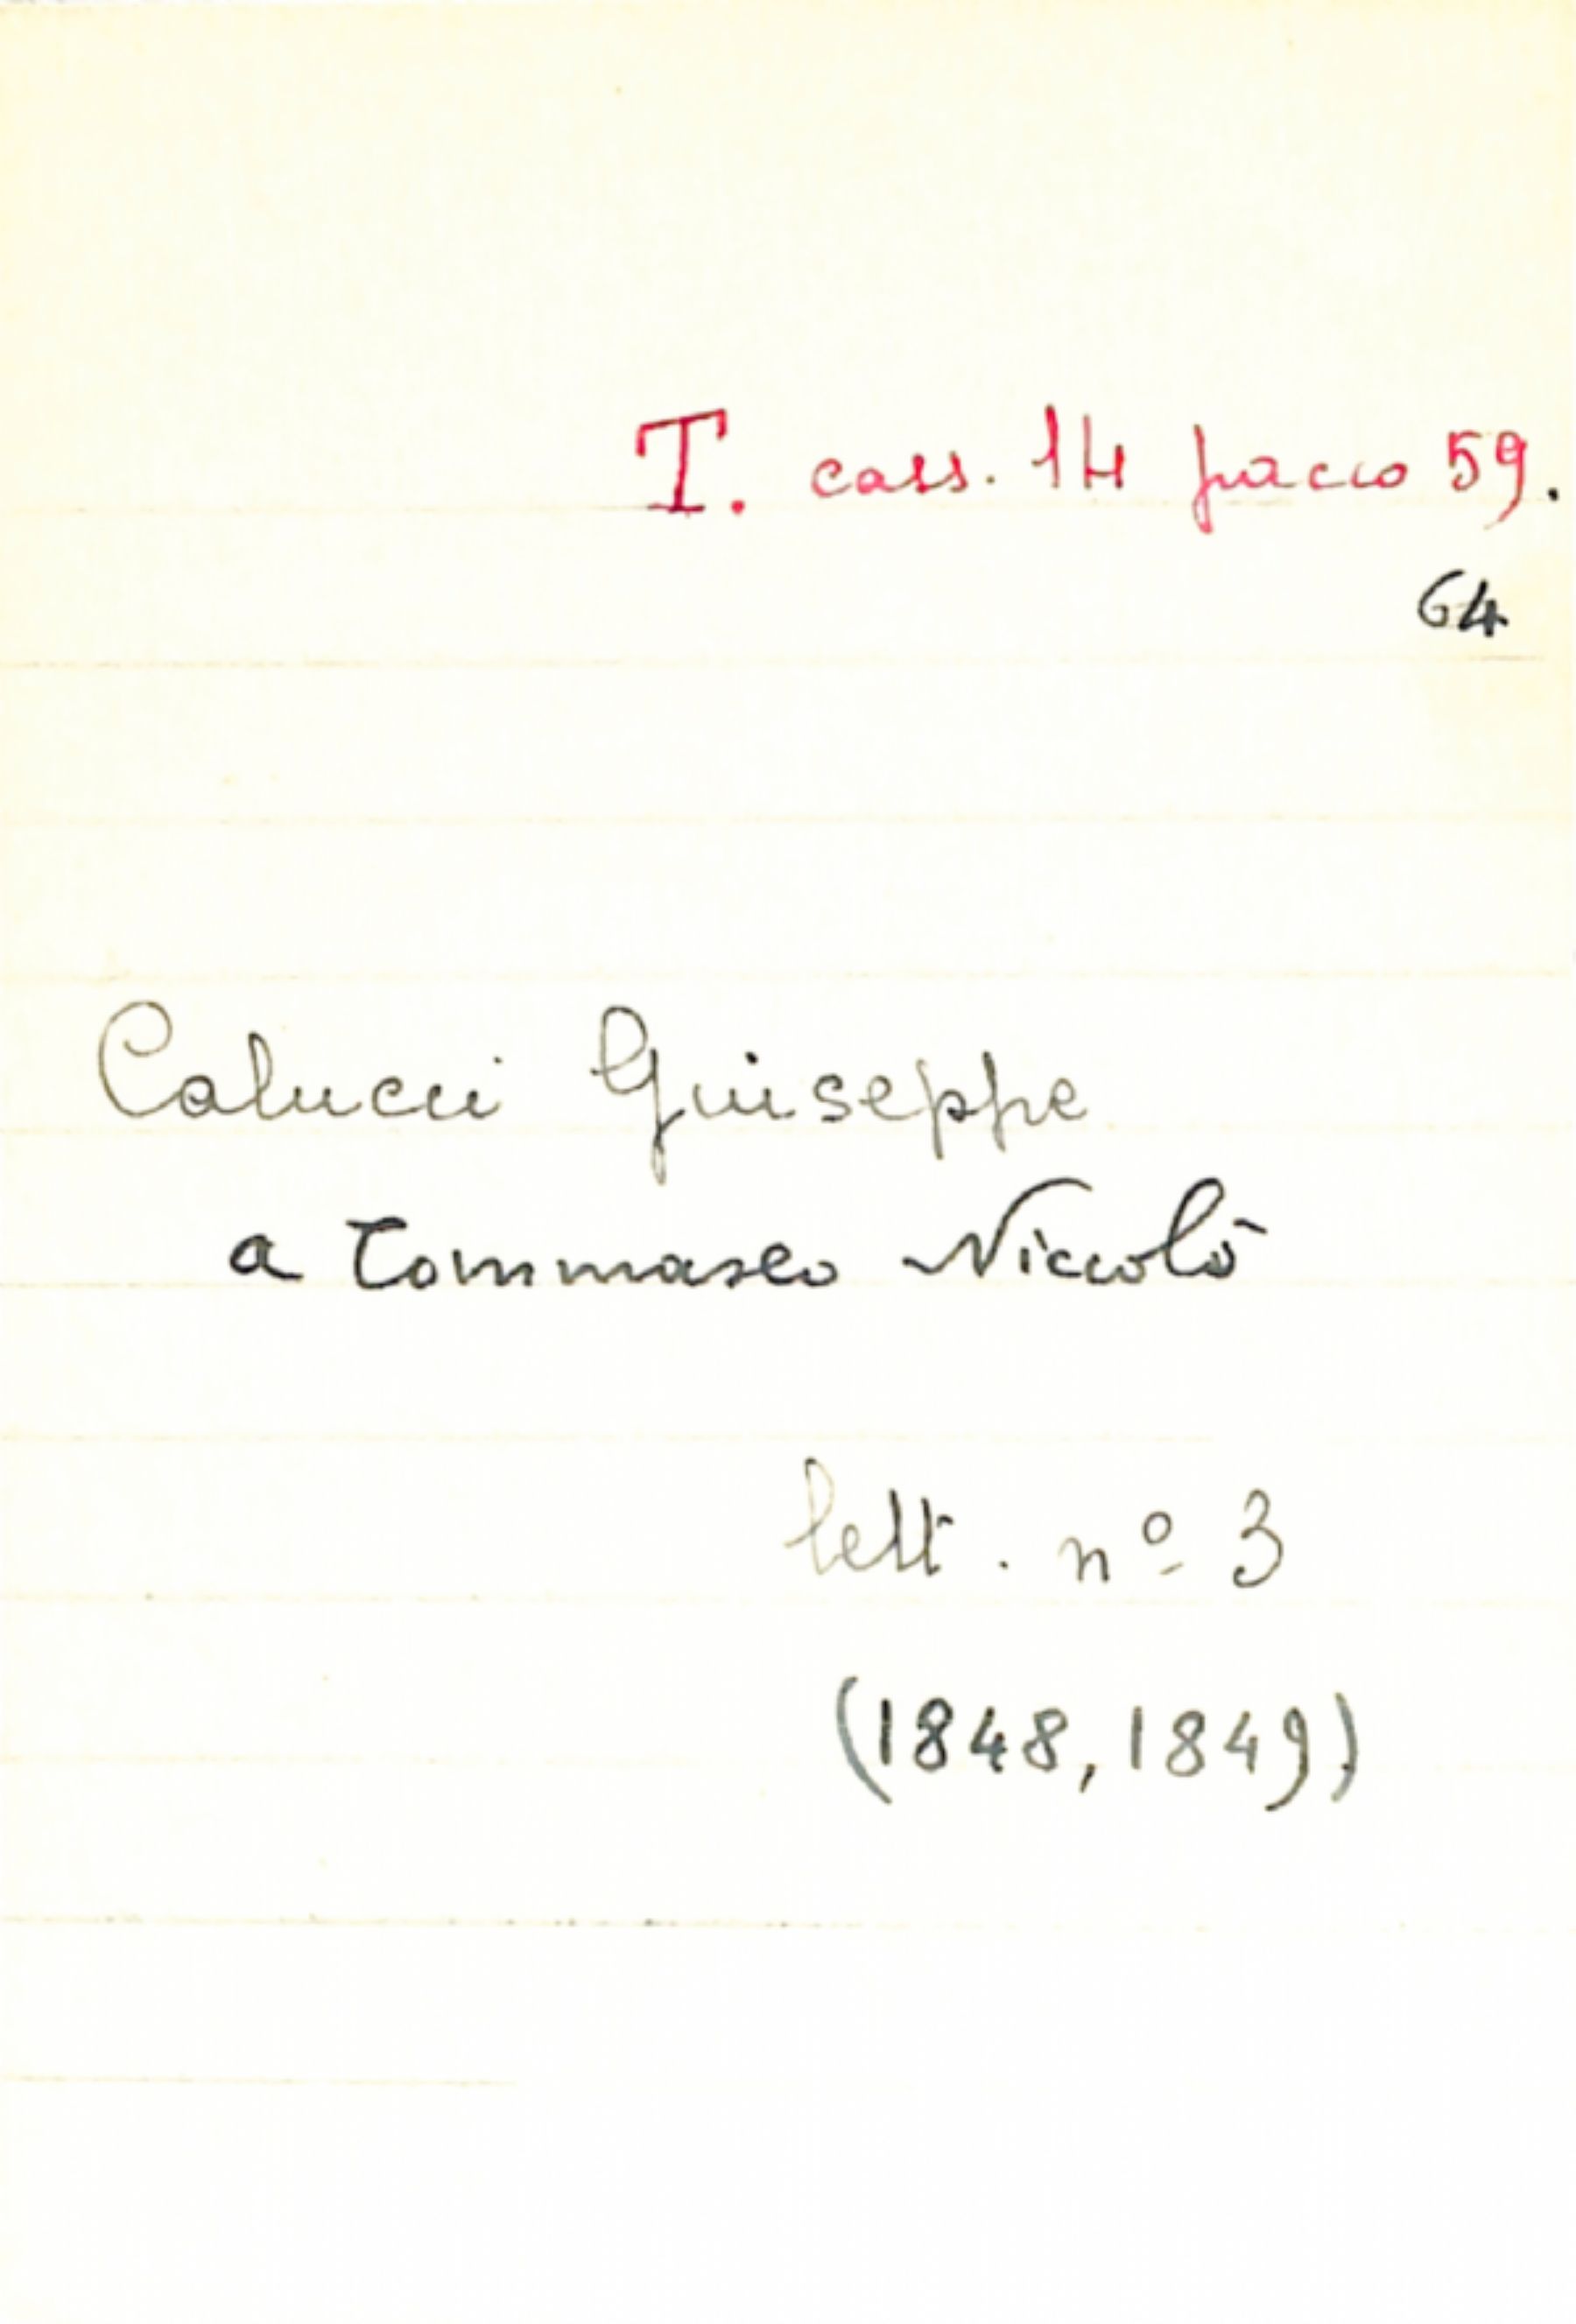 T. cass. 14 pacco 59.
64
Calucci Giuseppe
a Tommaseo Niccolò
lett. nº 3
(1848, 1849)